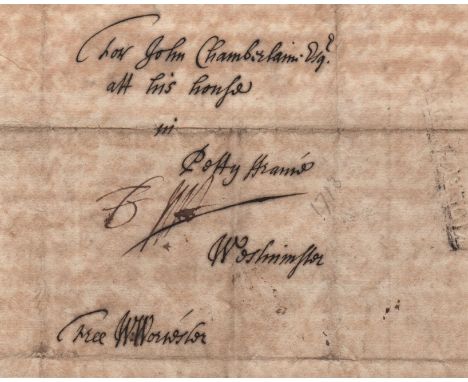 For John Chamberlaine Esqr.
att his house
in
Petty france
1718
Westminster
Free W. Worcester